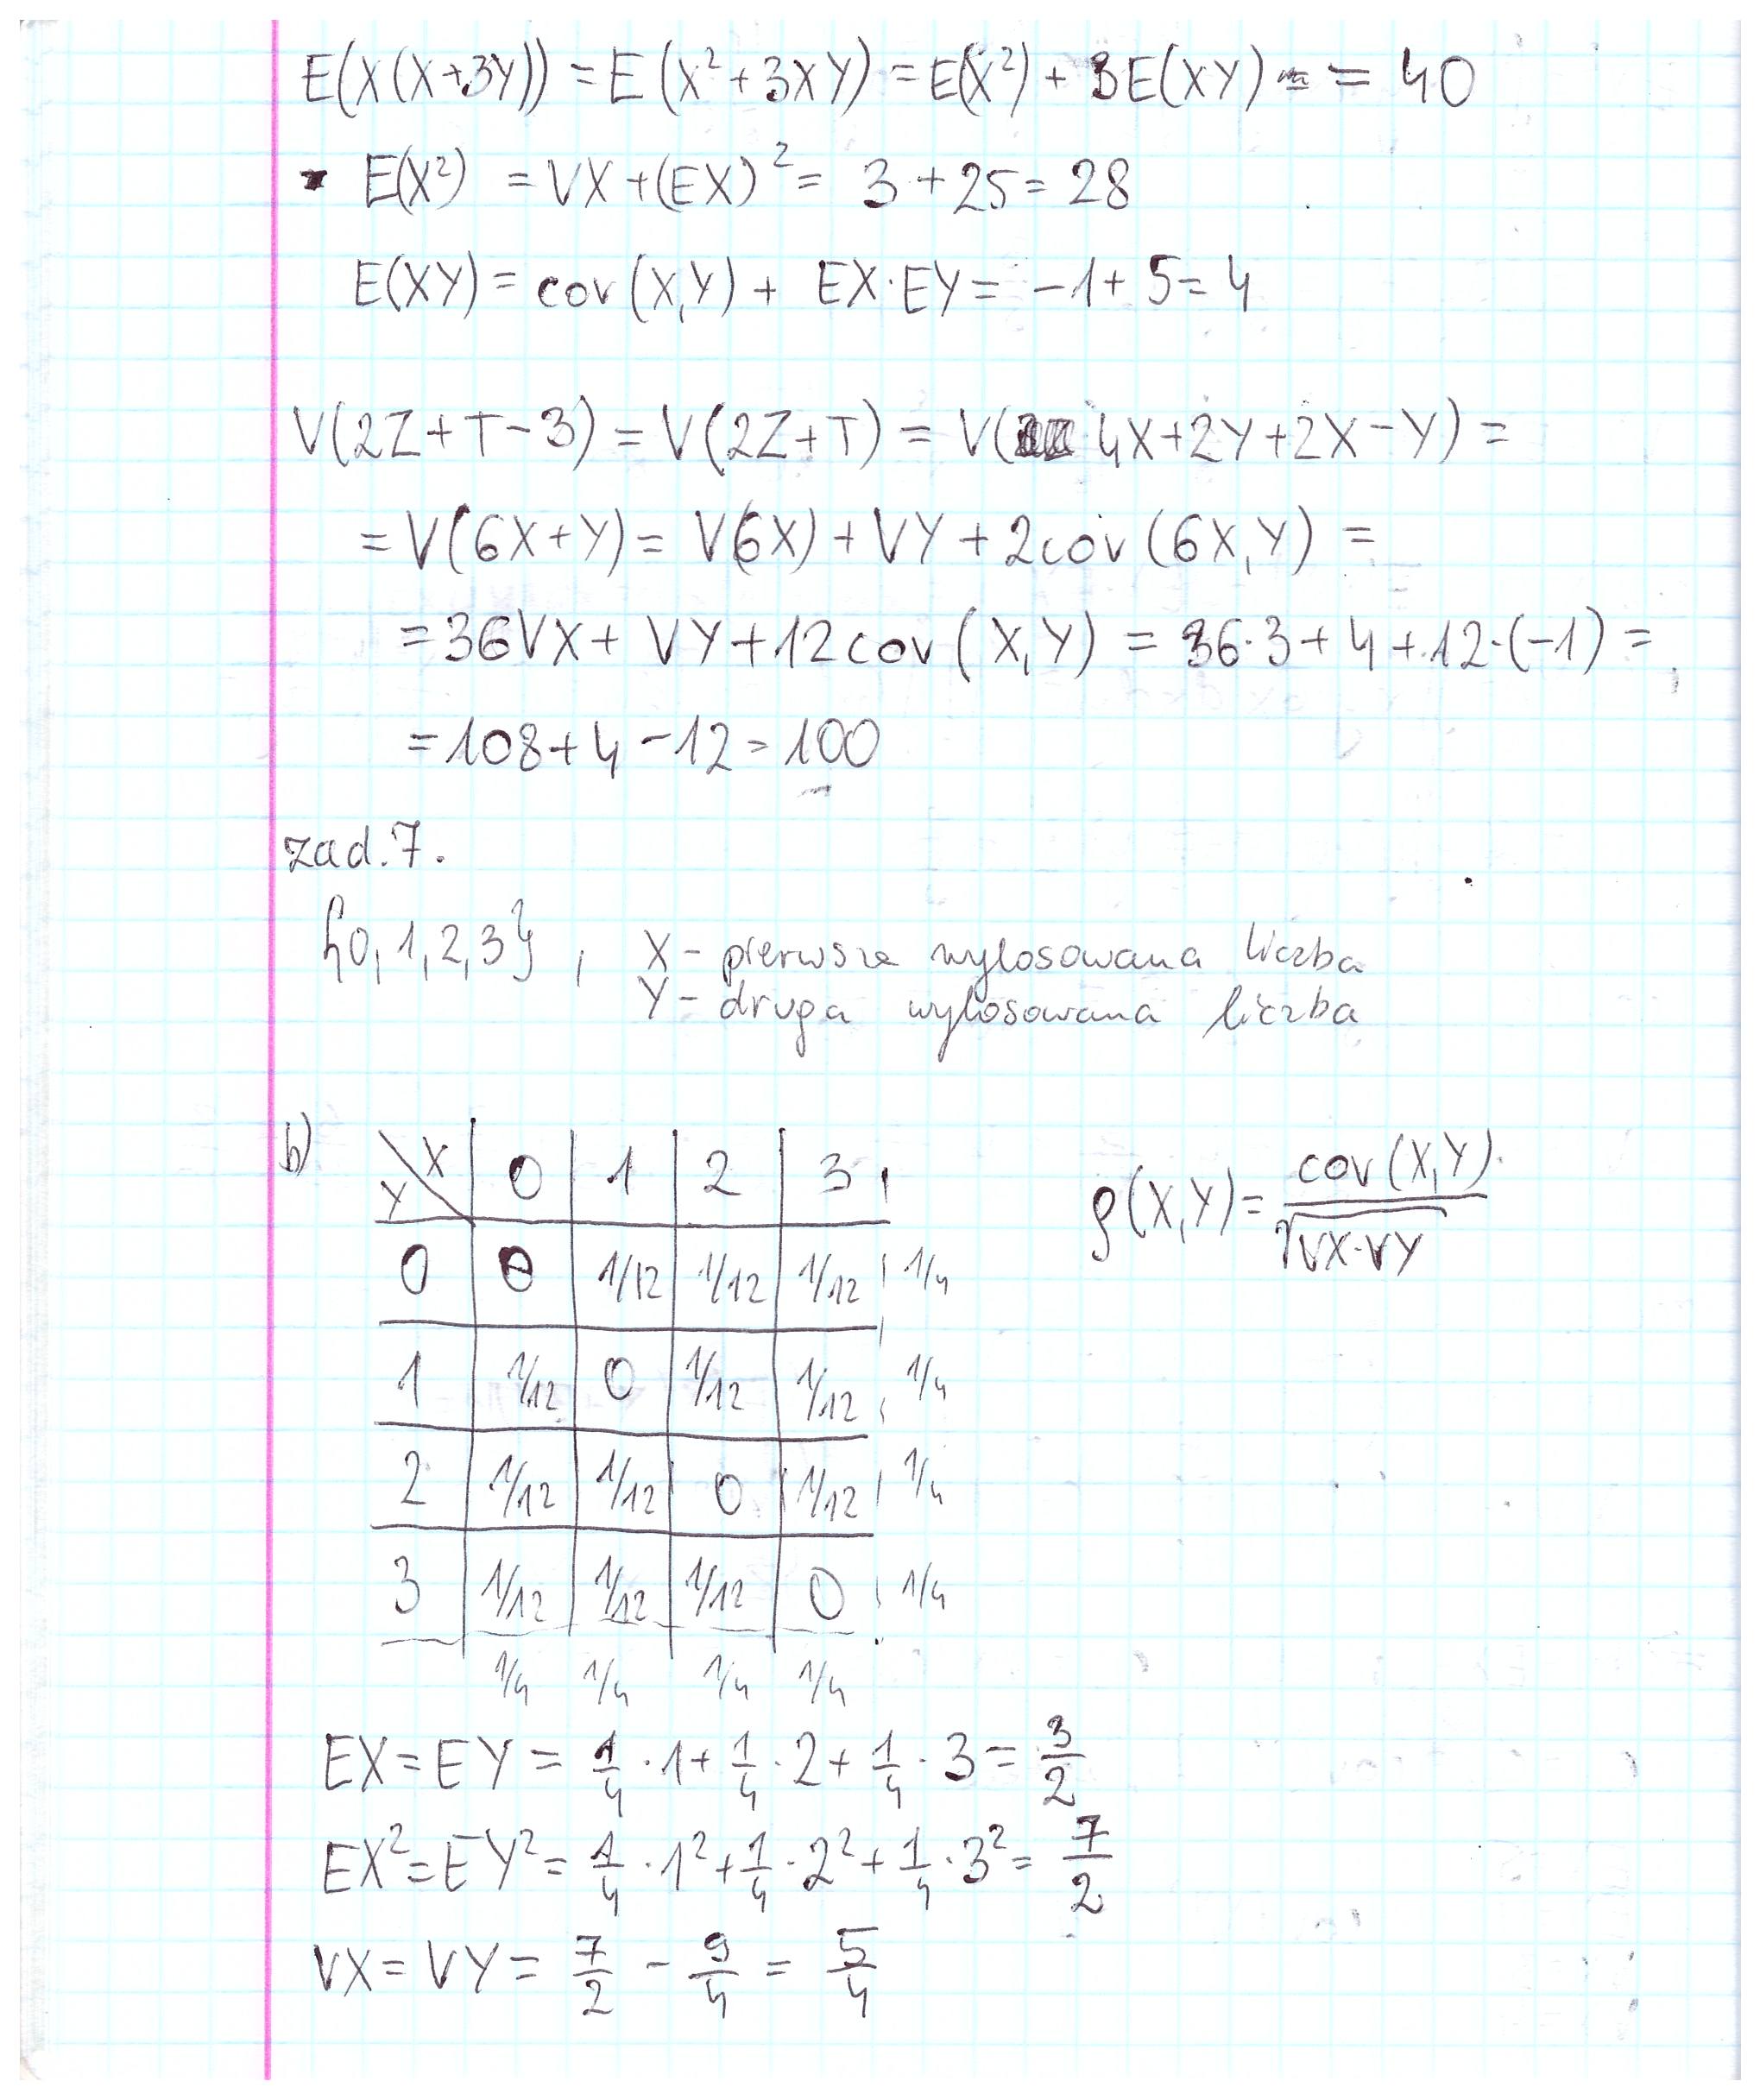 E(X(X+3Y)) = E(X²+3XY) = E(X²) + 3E(XY) = = 40
E(X²) = VX+(EX)² = 3+25 = 28
E(XY) = cov(X,Y) + EX·EY = -1+5 = 4
V(2Z+T-3) = V(2Z+T) = V( 4X+2Y+2X-Y) =
= V(6X+Y) = V(6X) + VY + 2cov(6X,Y) =
= 36VX + VY + 12cov(X,Y) = 36·3+4+12·(-1) =
= 108+4-12 = 100
zad.7.
{0,1,2,3} , X - pierwsza wylosowana liczba
Y - druga wylosowana liczba
b)
Y\X 0 1 2 3
0 0 1/12 1/12 1/12 1/4
1 1/12 0 1/12 1/12 1/4
2 1/12 1/12 0 1/12 1/4
3 1/12 1/12 1/12 0 1/4
1/4 1/4 1/4 1/4
ρ(X,Y) = cov(X,Y) / √VX·VY
EX = EY = 1/4·1 + 1/4·2 + 1/4·3 = 3/2
EX² = EY² = 1/4·1² + 1/4·2² + 1/4·3² = 7/2
VX = VY = 7/2 - 9/4 = 5/4